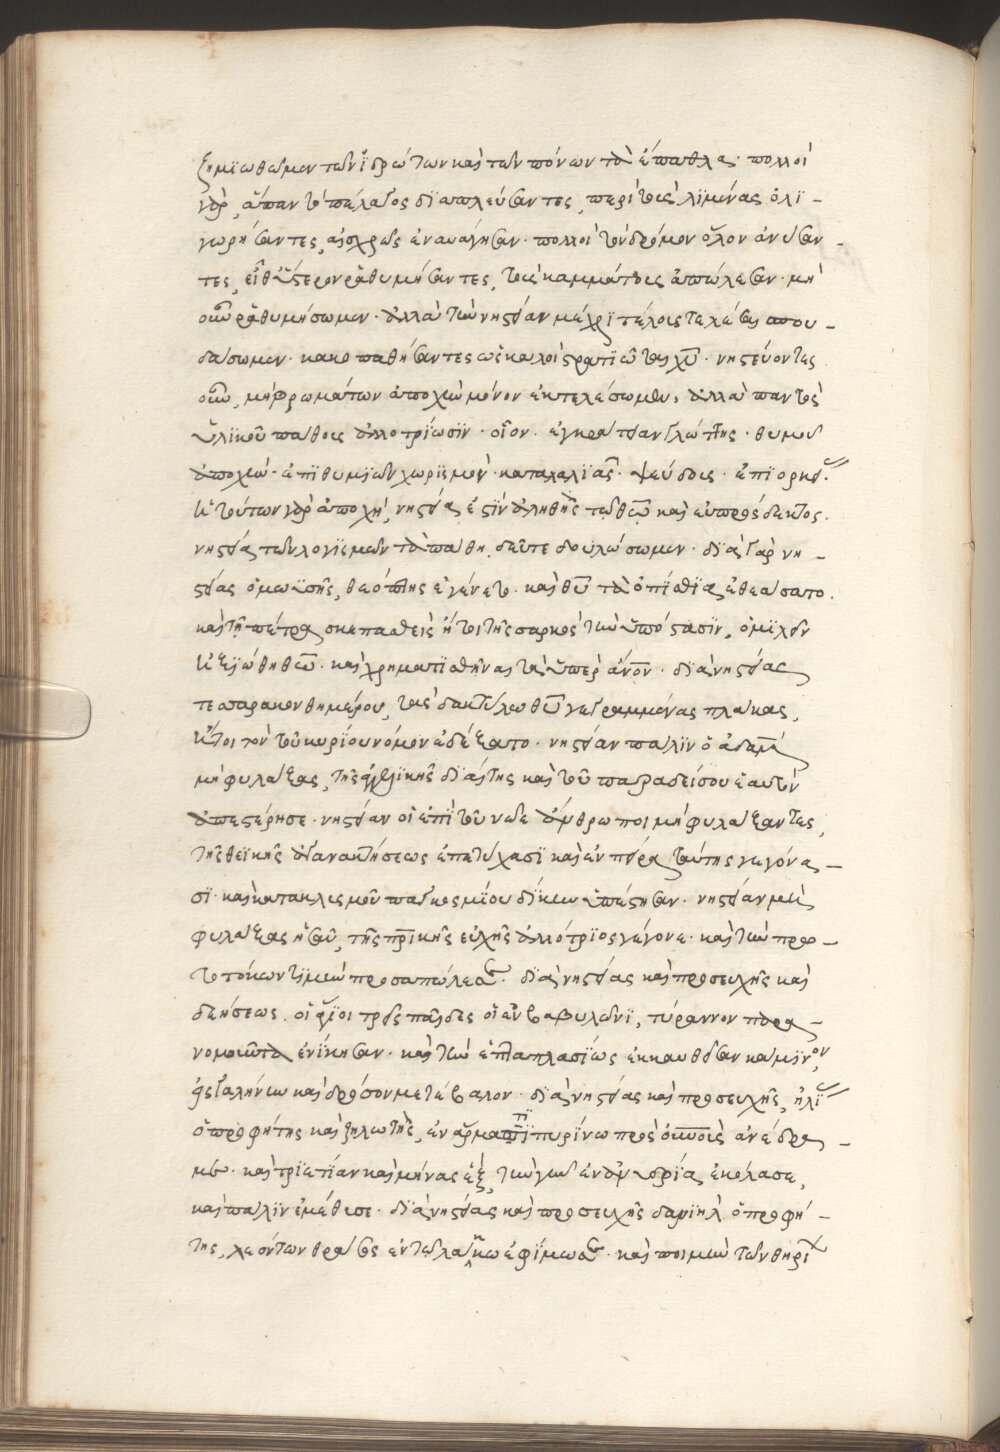 ζημϊωθῶμεν τῶν ἱδρώτων καὶ τῶν πόνων τὰ ἔπαθλα· πολλοὶ
γὰρ, ἅπαν τὸ πέλαγος διαπλεύσαντες, περὶ τοὺς λϊμένας ὀλϊ-
γωρήσαντες, αἰσχρῶς ἐναυάγησαν· πολλοὶ τὸν δρόμον ὅλον ἀνύσαν-
τες, εἶθ' ὕστερον ῥᾳθυμήσαντες, τοὺς καμμάτους ἀπώλεσαν· μὴ
οὖν ῥᾳθυμήσωμεν· ἀλλὰ τὴν νηστείαν μέχρϊ τέλους τελέσαι σπου-
δάσωμεν· κακοπαθήσαντες ὡς καλοὶ στρατιῶται χ̅υ̅· νηστεύοντες
οὖν, μὴ βρωμάτων ἀποχὴν μόνον ἐκτελέσωμεν, ἀλλὰ παντὸς
ὑλϊκοῦ πάθους ἀλλοτρίωσϊν· οἷον· ἐγκράτειαν γλώττης· θυμοῦ
ἀποχὴν· ἐπϊθυμϊῶν χωρϊσμὸν· καταλαλϊᾶς· ψεύδους· ἐπϊορκεί·
ἡ τούτων γὰρ ἀποχὴ, νηστεία ἐστϊν ἀληθὴς τῷ θ̅ῶ̅ καὶ εὐπρόσδεκτος·
νηστείᾳ τῶν λογϊσμῶν τὰ πάθη δεῦτε δουλώσωμεν· δϊὰ γὰρ νη-
στείας ὁ μωϋσῆς, θεόπτης ἐγένετο· καὶ θ̅υ̅ τὰ ὀπίσθϊα ἐθεάσατο·
καὶ τῇ πέτρᾳ σκεπασθεὶς ἤτοι τῆς σαρκὸς τὴν ὑπόστασϊν, ὁμϊλεῖν
ἠξϊώθη θ̅ῶ̅· καὶ χρηματϊσθῆναι τὰ ὑπὲρ ἄν̅ο̅ν̅· δϊὰ νηστείας
τεσσαρακονθημέρου, τὰς δακτύλῳ θ̅υ̅ γεγραμμένας πλάκας,
ἤτοι τὸν τοῦ κυρίου νόμον ἐδέξατο· νηστείαν πάλϊν ὁ ἀδὰμ
μὴ φυλάξας, τῆς ἀγγελϊκῆς δϊαίτης καὶ τοῦ παραδείσου ἑαυτὸν
ἀπεστέρησε· νηστείαν οἱ ἐπὶ τοῦ νῶε ἄνθρωποι μὴ φυλάξαντες,
τῆς θεϊκῆς ἀγανακτήσεως ἐπετύχασϊ καὶ ἐν πείρᾳ ταύτης γεγόνα-
σϊ· καὶ κατακλυσμοῦ παγκοσμίου δίκην ὑπέστησαν· νηστείαν μὴ
φυλάξας ἡσαῦ, τῆς π̅ρ̅ικῆς εὐχῆς ἀλλότριος γέγονε· καὶ τὴν πρω-
τοτόκων τϊμὴν προσαπώλεσεν· δϊὰ νηστείας καὶ προσευχῆς καὶ
δεήσεως, οἱ ἅγιοι τρεῖς παῖδες οἱ ἐν βαβυλῶνϊ, τύραννον παρα-
νομοῦντα ἐνίκησαν· καὶ τὴν ἑπταπλασϊως ἐκκαυθεῖσαν κάμϊνον,
εἰς γαλήνην καὶ δρόσον μετέβαλον· δϊὰ νηστείας καὶ προσευχῆς, ἠλϊ
ὁ προφήτης καὶ ζηλωτὴς, ἐν ἅρματϊ πυρίνῳ πρὸς ο̅υ̅ν̅ο̅ὺ̅ς ἀνέδρα-
με· καὶ τρϊετίαν καὶ μῆνας ἓξ, τὴν γῆν ἐν ἀνυδρίᾳ ἐκόλασε,
καὶ πάλϊν ἐμέθυσε· δϊὰ νηστείας καὶ προσευχῆς δανιὴλ ὁ προφή-
της, λεόντων θράσος ἐν τῷ λάκκῳ ἐφίμωσεν· καὶ ποιμὴν τῶν θηρί